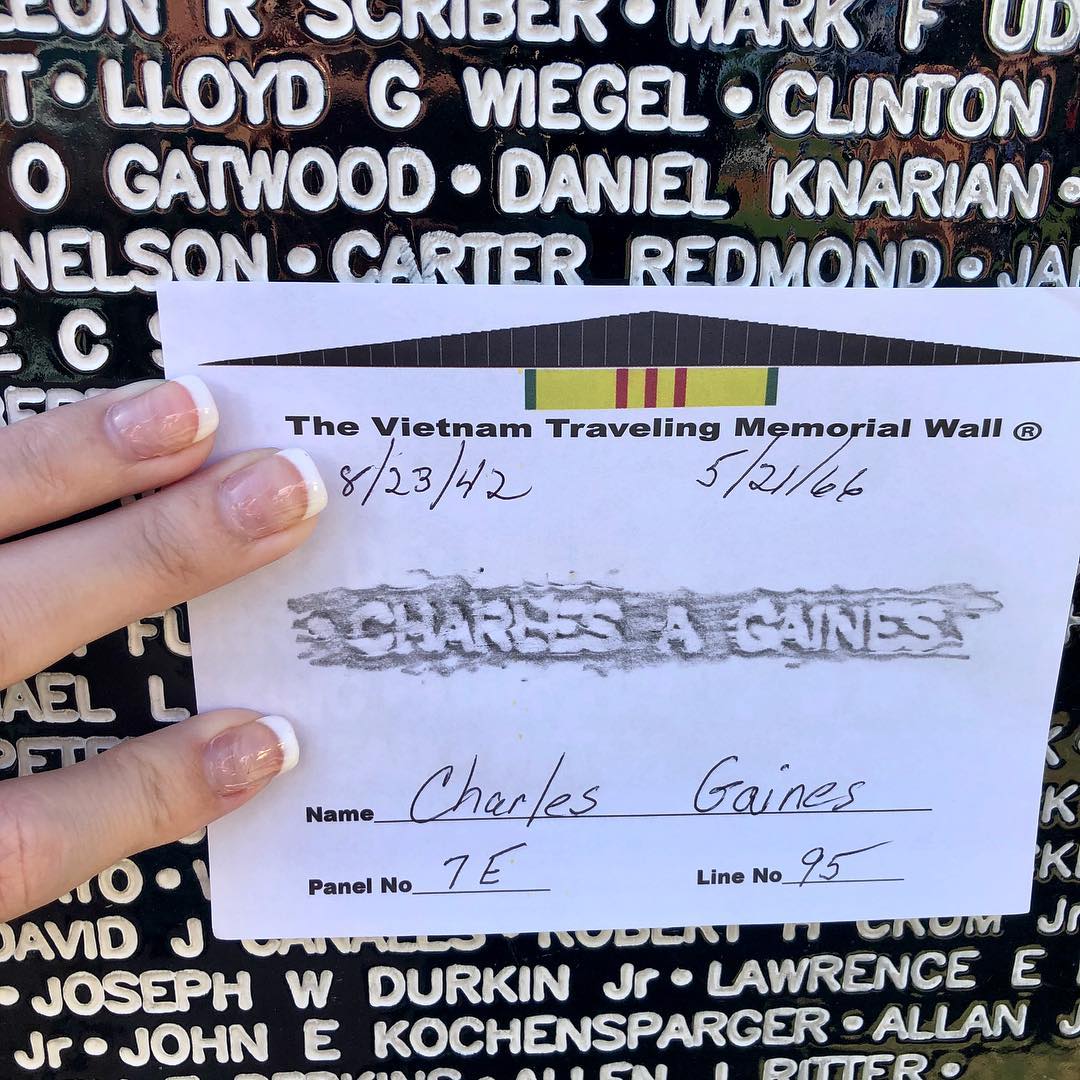 LEON R SCRIBER • MARK F UD
T • LLOYD G WIEGEL • CLINTON
O GATWOOD • DANIEL KNARIAN •
NELSON • CARTER REDMOND • JA
E C
The Vietnam Traveling Memorial Wall ®
8/23/42 5/21/66
CHARLES A GAINES
FU
AEL L
PETE
Name Charles Gaines
Panel No 7E Line No 95
TO •
DAVID J CANALES • ROBERT H CRUM Jr
• JOSEPH W DURKIN Jr • LAWRENCE E
Jr • JOHN E KOCHENSPARGER • ALLAN J
PERKINS • ALLEN J RITTER •